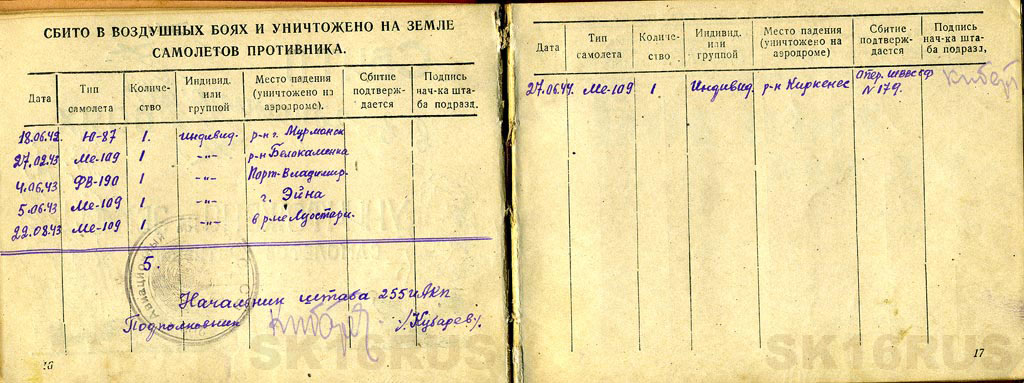 СБИТО В ВОЗДУШНЫХ БОЯХ И УНИЧТОЖЕНО НА ЗЕМЛЕ
САМОЛЕТОВ ПРОТИВНИКА.
Дата Тип самолета Количество Индивид. или группой Место падения (уничтожено на аэродроме). Сбитие подтверждается Подпись нач-ка штаба подразд.
18.06.42 Ю-87 1. индивид. р-н г. Мурманск
27.02.43 Ме-109 1 -"- р-н Белокаменка
4.06.43 ФВ-190 1 -"- Порт-Владимир.
5.06.43 Ме-109 1 -"- г. Эйна
22.08.43 Ме-109 1 -"- в р-не Луостари.
5.
Авиационный
Начальник штаба 255 иАкп
Подполковник /Кубарев/.
16
SK16RUS
Дата Тип самолета Количество Индивид. или группой Место падения (уничтожено на аэродроме) Сбитие подтверждается Подпись нач-ка штаба подразд,
27.06.44. Ме-109 1 Индивид. р-н Киркенес Опер. шввс сф N 179.
17
SK16RUS